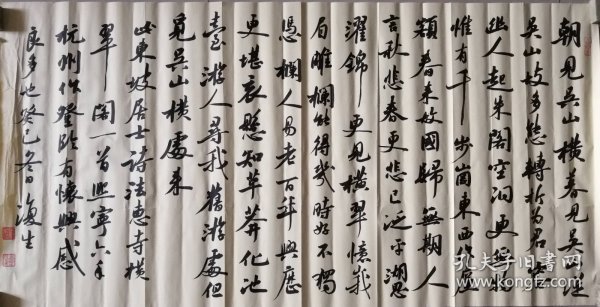 朝見吳山橫暮見吳山縱
吳山故多態轉折為君容
幽人起朱閣空洞更無物
惟有千步崗東西作簾
額春來故國歸無期人
言秋悲春更悲已泛平湖思
濯錦更見橫翠憶峨
眉雕欄能得幾時好不獨
憑欄人易老百年興廢
更堪哀懸知草莽化池
臺游人尋我舊游處但
覓吳山橫處來
此東坡居士詩法惠寺橫
翠閣一首熙寧六年
杭州作登臨有懷興感
良多也癸巳冬日生
孔夫子旧书网